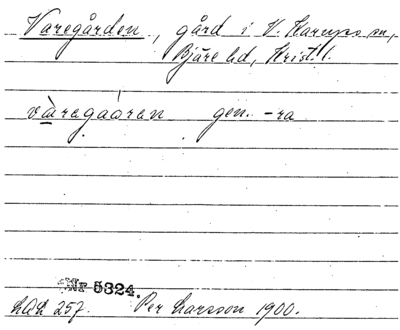 Varegården, gård i V. Karups sn,
Bjäre hd, Krist. l.
våregaaren gen. -ra
Nr 5324.
LAL 257. Per Larsson 1900.